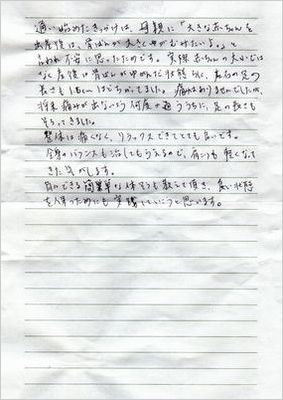 通い始めたきっかけは、母親に「大きな赤ちゃんを
出産後は、骨ばんが大きくゆがむみたいよ。」と
言われ不安に思ったためです。実際赤ちゃんの大小では
なく産後は骨ばんがゆがんだ状態らしく、左右の足の
長さも1cmほどちがってました。痛みはありませんでしたが、
将来痛みが出ないよう何度か通ううちに、足の長さも
そろってきました。
整体は痛くなく、リラックスできてとても良いです。
全身のバランスも治してもらえるので、肩こりも軽くなって
きた気がします。
自分でできる簡単な体そうも教えて頂き、良い状態
を保つためにも実践していこうと思います。